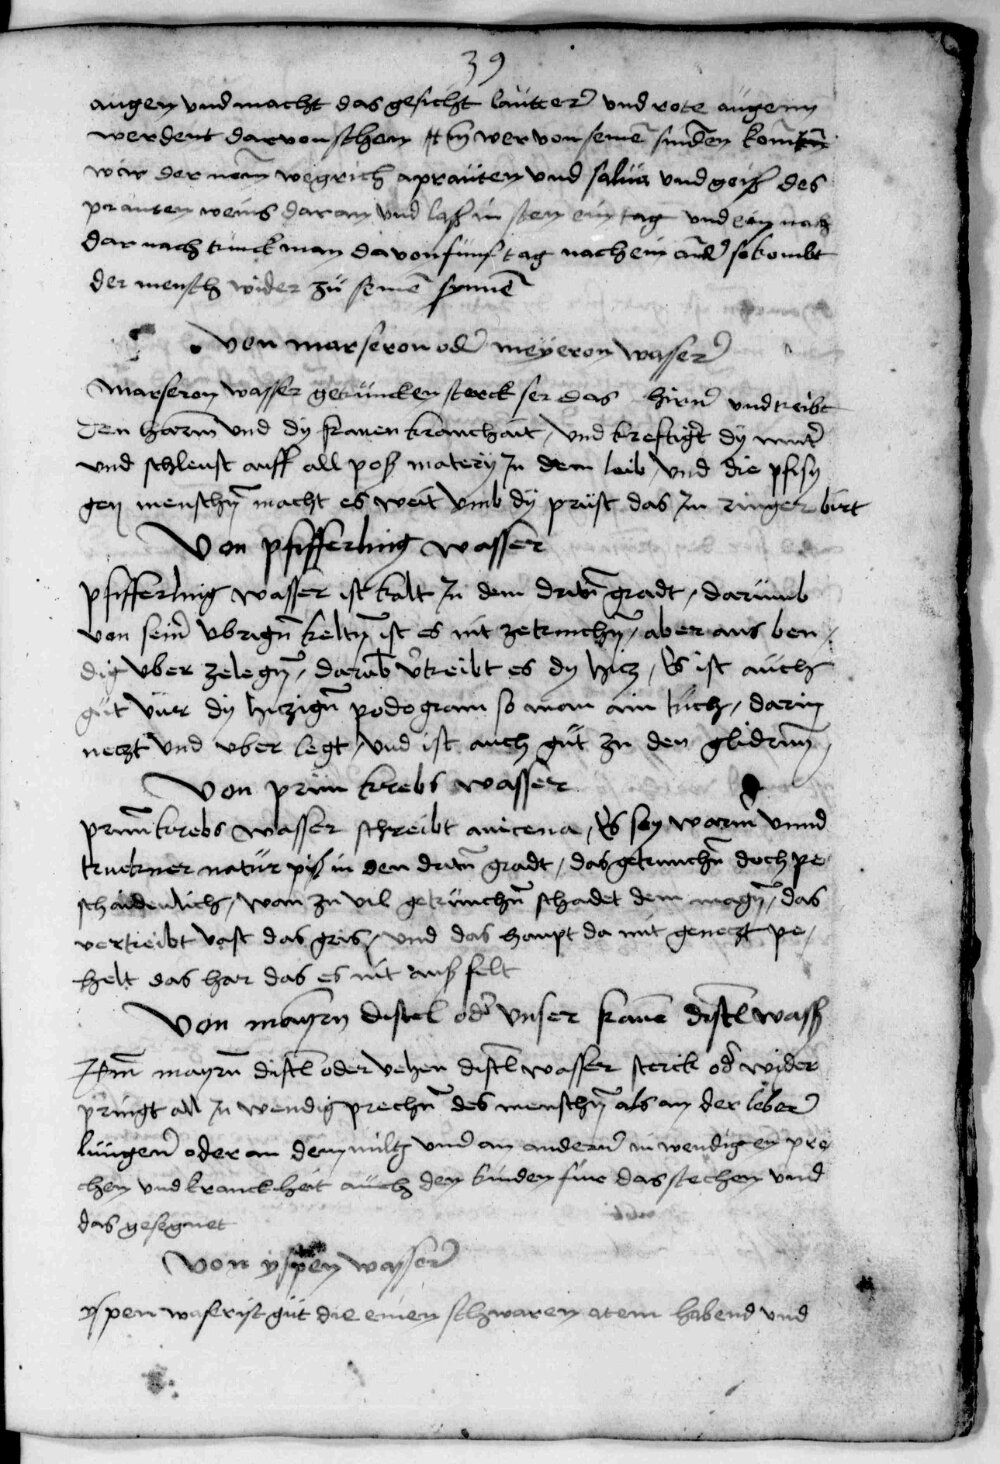 39
augen vnd macht das gesicht lautter vnd rote augenn
werdent darvon schen It wer von seinen sinden kom
wär der nem wegrich aprauten vnd salua vnd geüß des
prauten weins daran vnd laß in sten ein tag vnd ein nach
dar nach trinck man davon funf tag nach ein ander so kombt
der mensch wider zü seinen synnen
Von marseron oder meyeron wasser
Marseron wasser getruncken sterck ser das hirn vnd treibt
den harm vnd dy frauen kranchait, vnd kreftigt dy muter
vnd schleust auff all poß matery In dem leib, vnd die pfisy
gen menschn macht es weit vmb dy prüst das Im ringer birt
Von pfifferling wasser
pfifferling wasser ist kalt In dem dritn gradt, darumb
von seiner vbrign keltn ist es nit zetrinchn, aber aus ben,
dig vber zelegn, darab vertreibt es dy hicz, Es ist auch
güt vür dy hiczign podogram so man ain tuch, darin
neczt vnd vber legt, vnd ist auch güt zu den glidrnn,
Von prun krebs wasser
prunkrebs wasser schreibt auicena, Es sey warm vnnd
truckner natur piß in den dritn gradt, das getrunchn doch pe
schaidenlich, wan zu vil getrunchn schadet dem magn, das
vertreibt vast das gris, vnd das haupt da mit geneczt pe,
helt das har das es nit auß felt
Von mayrn distel oder vnser frauen distl wasser
Item mayrn distl oder vehen distl wasser sterck oder wider
pringt all In wendig prechn des menschn als an der leber
lungen oder an dem miltz vnd an andern in wendigen pre
chen vnd kranckheit auch den kinden für das stechen vnd
das gesegnet
Von yspen wasser
yspen waser ist güt die einen schwaren atem habend vnd